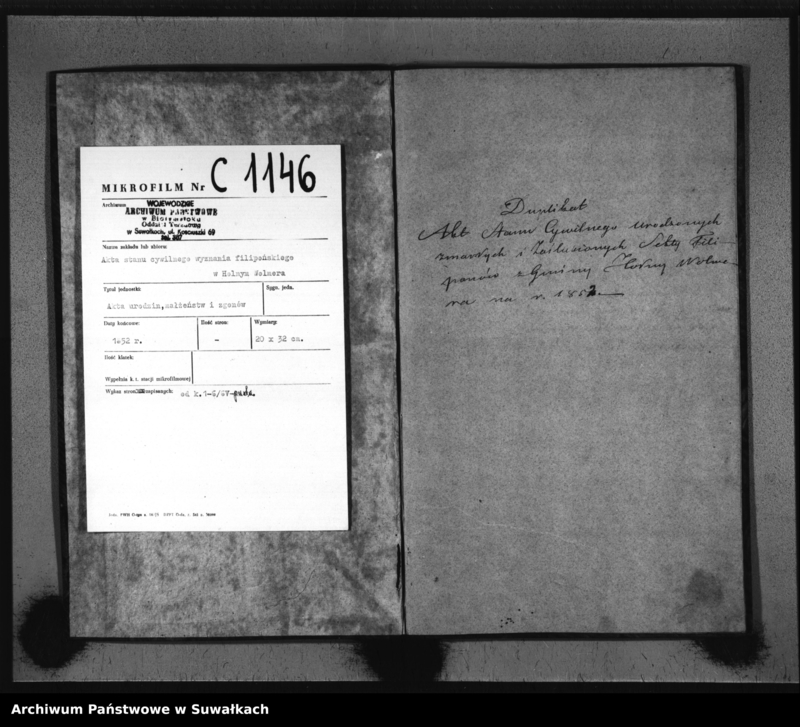 MIKROFILM Nr C 1146
Archiwum
WOJEWÓDZKIE
ARCHIWUM PAŃSTWOWE
w Białymstoku
Oddział Terenowy
w Suwałkach, ul. Kościuszki 69
Nazwa zakładu lub zbioru:
Akta stanu cywilnego wyznania filipońskiego
w Hołnym Wolmera
Tytuł jednostki:
Sygn. jedn.
Akta urodzin, małżeństw i zgonów
Daty końcowe:
Ilość stron:
Wymiary:
1852 r.
–
20 x 32 cm.
Ilość klatek:
Wypełnia k. t. stacji mikrofilmowej
od k. 1-6/67-
Duplikat
Akt Stanu Cywilnego urodzonych
zmarłych i Zaślubionych Sekty Fili-
ponów z Gminy Hołny Wolme-
ra na r. 1852
Archiwum Państwowe w Suwałkach